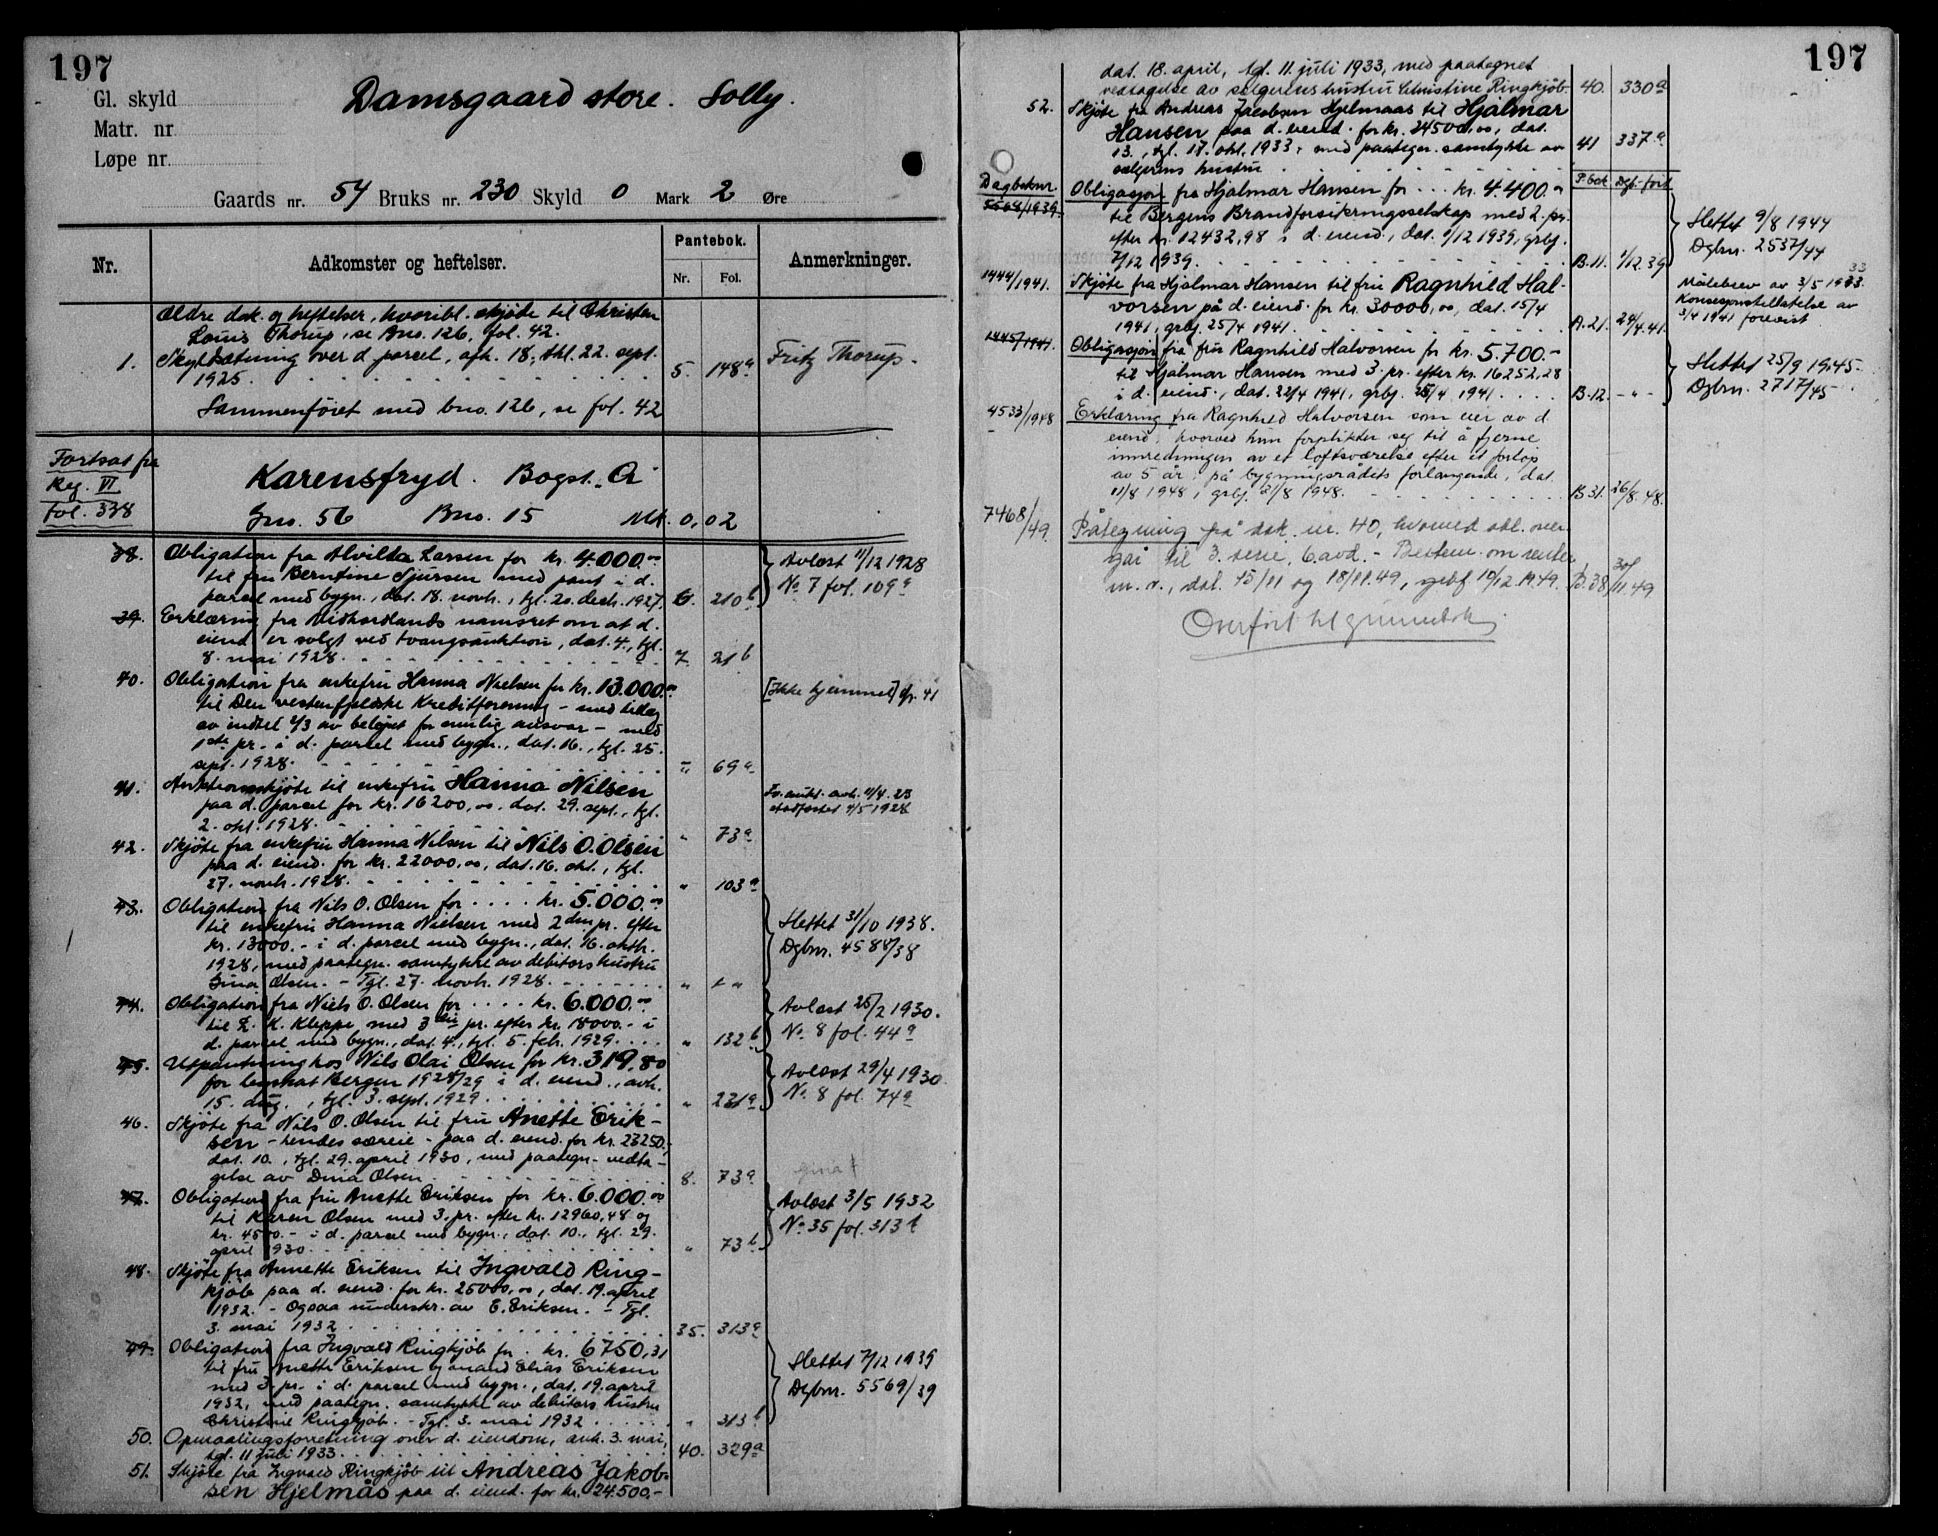 197
Gl. skyld
Matr. nr
Løpe nr.
Damsgaard store. Solly.
Gaards nr. 54 Bruks nr. 230 Skyld 0 Mark 2 Øre
Nr. Adkomster og heftelser. Pantebok. Nr. Fol. Anmerkninger.
Ældre dok. og heftelser, hvoribl. skjøte til Christen
Louis Thorup, se Bno. 126, fol. 42.
1. Skyldsætning over d. parcel, afh. 18, thl. 22. sept. 1925. 5. 148a Fritz Thorup.
Sammenføiet med bno. 126, se fol. 42
Fortsat fra
Reg. VI
fol. 338
Karensfryd. Bogst. a
Gno. 56 Bno. 15 Mk. 0,02
38. Obligation fra Alvilda Larsen for kr. 4.000.oo
til fru Berntine Sjursen med pant i d.
parcel med bygn., dat. 18. novb., tgl. 20. decb. 1927. 6. 210b
Avlæst 11/12 1928
No 7 fol. 109a
39. Erklæring fra Midhordlands namsret om at d.
eiend. er solgt ved tvangsauktion, dat. 4., tgl.
8. mai 1928. 7. 21b
40. Obligation fra enkefru Hanna Nielsen for kr. 13.000.oo
til Den vestenfjeldske Kreditforening - med tillæg
av indtil 1/3 av beløpet for ansvar - med
1ste pr. i d. parcel med bygn., dat. 16., tgl. 25.
sept. 1928. " 69a
[Ikke hjemmel] cfr. 41
41. Auktionsskjøte til enkefru Hanna Nilsen
paa d. parcel for kr. 16200,oo, dat. 29. sept., tgl.
2. okt. 1928. " 73a
Iv. aukt. avh. 11/4 28
stadfæstet 4/5 1928
42. Skjøte fra enkefru Hanna Nilsen til Nils O. Olsen
paa d. eiend. for kr. 22000,oo, dat. 16. okt., tgl.
27. novb. 1928. " 103a
43. Obligation fra Nils O. Olsen for .... kr. 5.000.oo
til enkefru Hanna Nielsen med 2den pr. efter
kr. 13000.- i d. parcel med bygn., dat. 16. oktb.
1928, med paategn. samtykke av debitors hustru
Olsen. - Tgl. 27. novb. 1928.
Slettet 31/10 1938.
Dgbnr. 4588/38
44. Obligation fra Niels O. Olsen for .... kr. 6.000.oo
til L. K. Kleppe med 3die pr. efter kr. 18000.- i
d. parcel med bygn., dat. 4., tgl. 5. feb. 1929.... " 132b
Avlæst 25/2 1930.
No 8 fol. 44a
45. Utpantning hos Nils Olai Olsen for kr. 319,80
for byskat Bergen 1928/29 i d. eiend., avh.
15. aug., tgl. 3. sept. 1929. " 221a
Avlæst 29/4 1930
No 8 fol. 74a
46. Skjøte fra Nils O. Olsen til fru Anette Erik-
sen - hendes særeie - paa d. eiend. for kr. 23250.-
dat. 10., tgl. 29. april 1930, med paategn. vedta-
gelse av Dina Olsen. 8. 73a
gina?
47. Obligation fra fru Anette Eriksen for kr. 6.000.oo
til Karen Olsen med 3. pr. efter kr. 12960,48 og
kr. 4500.- i d. parcel med bygn., dat. 10., tgl. 29.
april 1930. " 73b
Avlæst 3/5 1932
No 35 fol. 313b
48. Skjøte fra Annette Eriksen til Ingvald Ring-
kjøb paa d. eiend. for kr. 25000,oo, dat. 19. april
1932. - Ogsaa underskr. av E. Eriksen. - Tgl.
3. mai 1932 35. 313a
49. Obligation fra Ingvald Ringkjøb for . kr. 6750,31
til fru Anette Eriksen og mand Elias Eriksen
med 3. pr. i d. parcel med bygn., dat. 19. april
1932, med paategn. samtykke av debitors hustru
Christine Ringkjøb. - Tgl. 3. mai 1932 ..... " 313b
Slettet 7/12 1939
Dgbnr. 5569/39
50. Opmaalingsforretning over d. eiendom, avh. 3. mai,
tgl. 11 juli 1933. 40. 329a
51. Skjøte fra Ingvald Ringkjøb til Andreas Jakob-
sen Hjelmås paa d. eiend. for kr. 24.500.-
197
dat. 18. april, tgl. 11. juli 1933, med paategnet
vedtagelse av selgerens hustru Christine Ringkjøb. 40. 330a
52. Skjøte fra Andreas Jacobsen Hjelmaas til Hjalmar
Hansen paa d. eiend. for kr. 24500,oo, dat.
13., tgl. 17. okt. 1933, med paategn. samtykke av
selgerens hustru 41 337a
Dagboknr. P.bok Dgb.ført
5568/1939. Obligasjon fra Hjalmar Hansen for ... kr. 4.400.-
til Bergens Brandforsikringsselskap med 2. pr.
efter kr. 12432,98 i d. eiend., dat. 1/12 1939, grbf.
7/12 1939. B.11. 7/12.39
Slettet 9/8 1944
Dgbnr. 2537/44
1444/1941. Skjøte fra Hjalmar Hansen til fru Ragnhild Hal-
vorsen på d. eiend. for kr. 30000,oo, dat. 15/4
1941, grbf. 25/4 1941. A.21. 24/4.41.
Målebrev av 3/5 1933.
Konsesjonstillatelse av
3/4 1941 forevist
1445/1941. Obligasjon fra fru Ragnhild Halvorsen for kr. 5.700.-
til Hjalmar Hansen med 3. pr. efter kr. 16252,28
i d. eiend., dat. 22/4 1941, grbf. 25/4 1941. B.12. - " -
Slettet 25/9 1945.
Dgbnr. 2717/45
4533/1948 Erklæring fra Ragnhild Halvorsen som eier av d.
eiend. hvorved hun forplikter seg til å fjerne
innredningen av et loftsværelse efter et forløp
av 5 år, på bygningsrådets forlangende, dat.
11/8 1948, grbf. 21/8 1948. B.31. 26/8.48.
7468/49. Påtegning på dok. nr. 40, hvorved obl. over-
går til 3. serie, 6. avd. - Bestem. om renter
m.v., dat. 15/11 og 18/11.49, grbf 10/12.1949. B.38 30/11.49
Overført til grunnbok